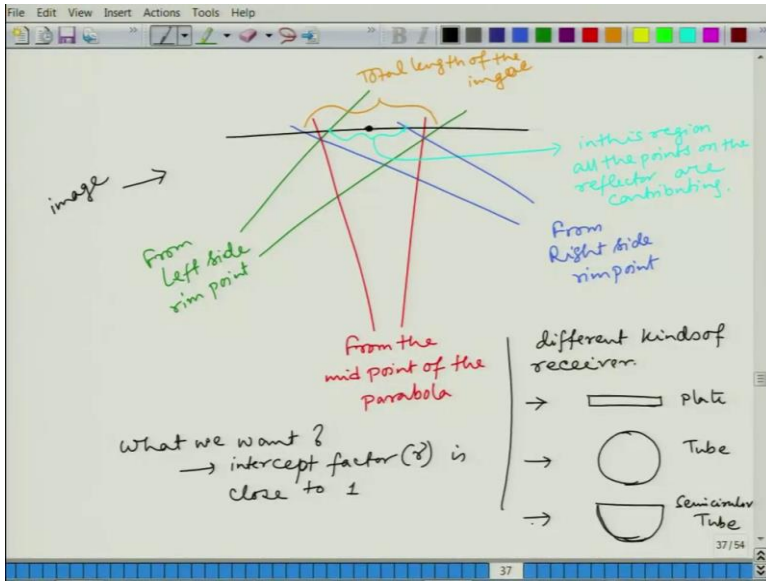 File Edit View Insert Actions Tools Help
Total length of the
imgae
in this region
all the points on the
reflector are
contributing.
image
From
Left side
rim point
From
Right side
rim point
From the
mid point of the
parabola
different kinds of
receiver.
Plate
Tube
Semicircular
Tube
What we want?
→ intercept factor (γ) is
close to 1
37/54
37